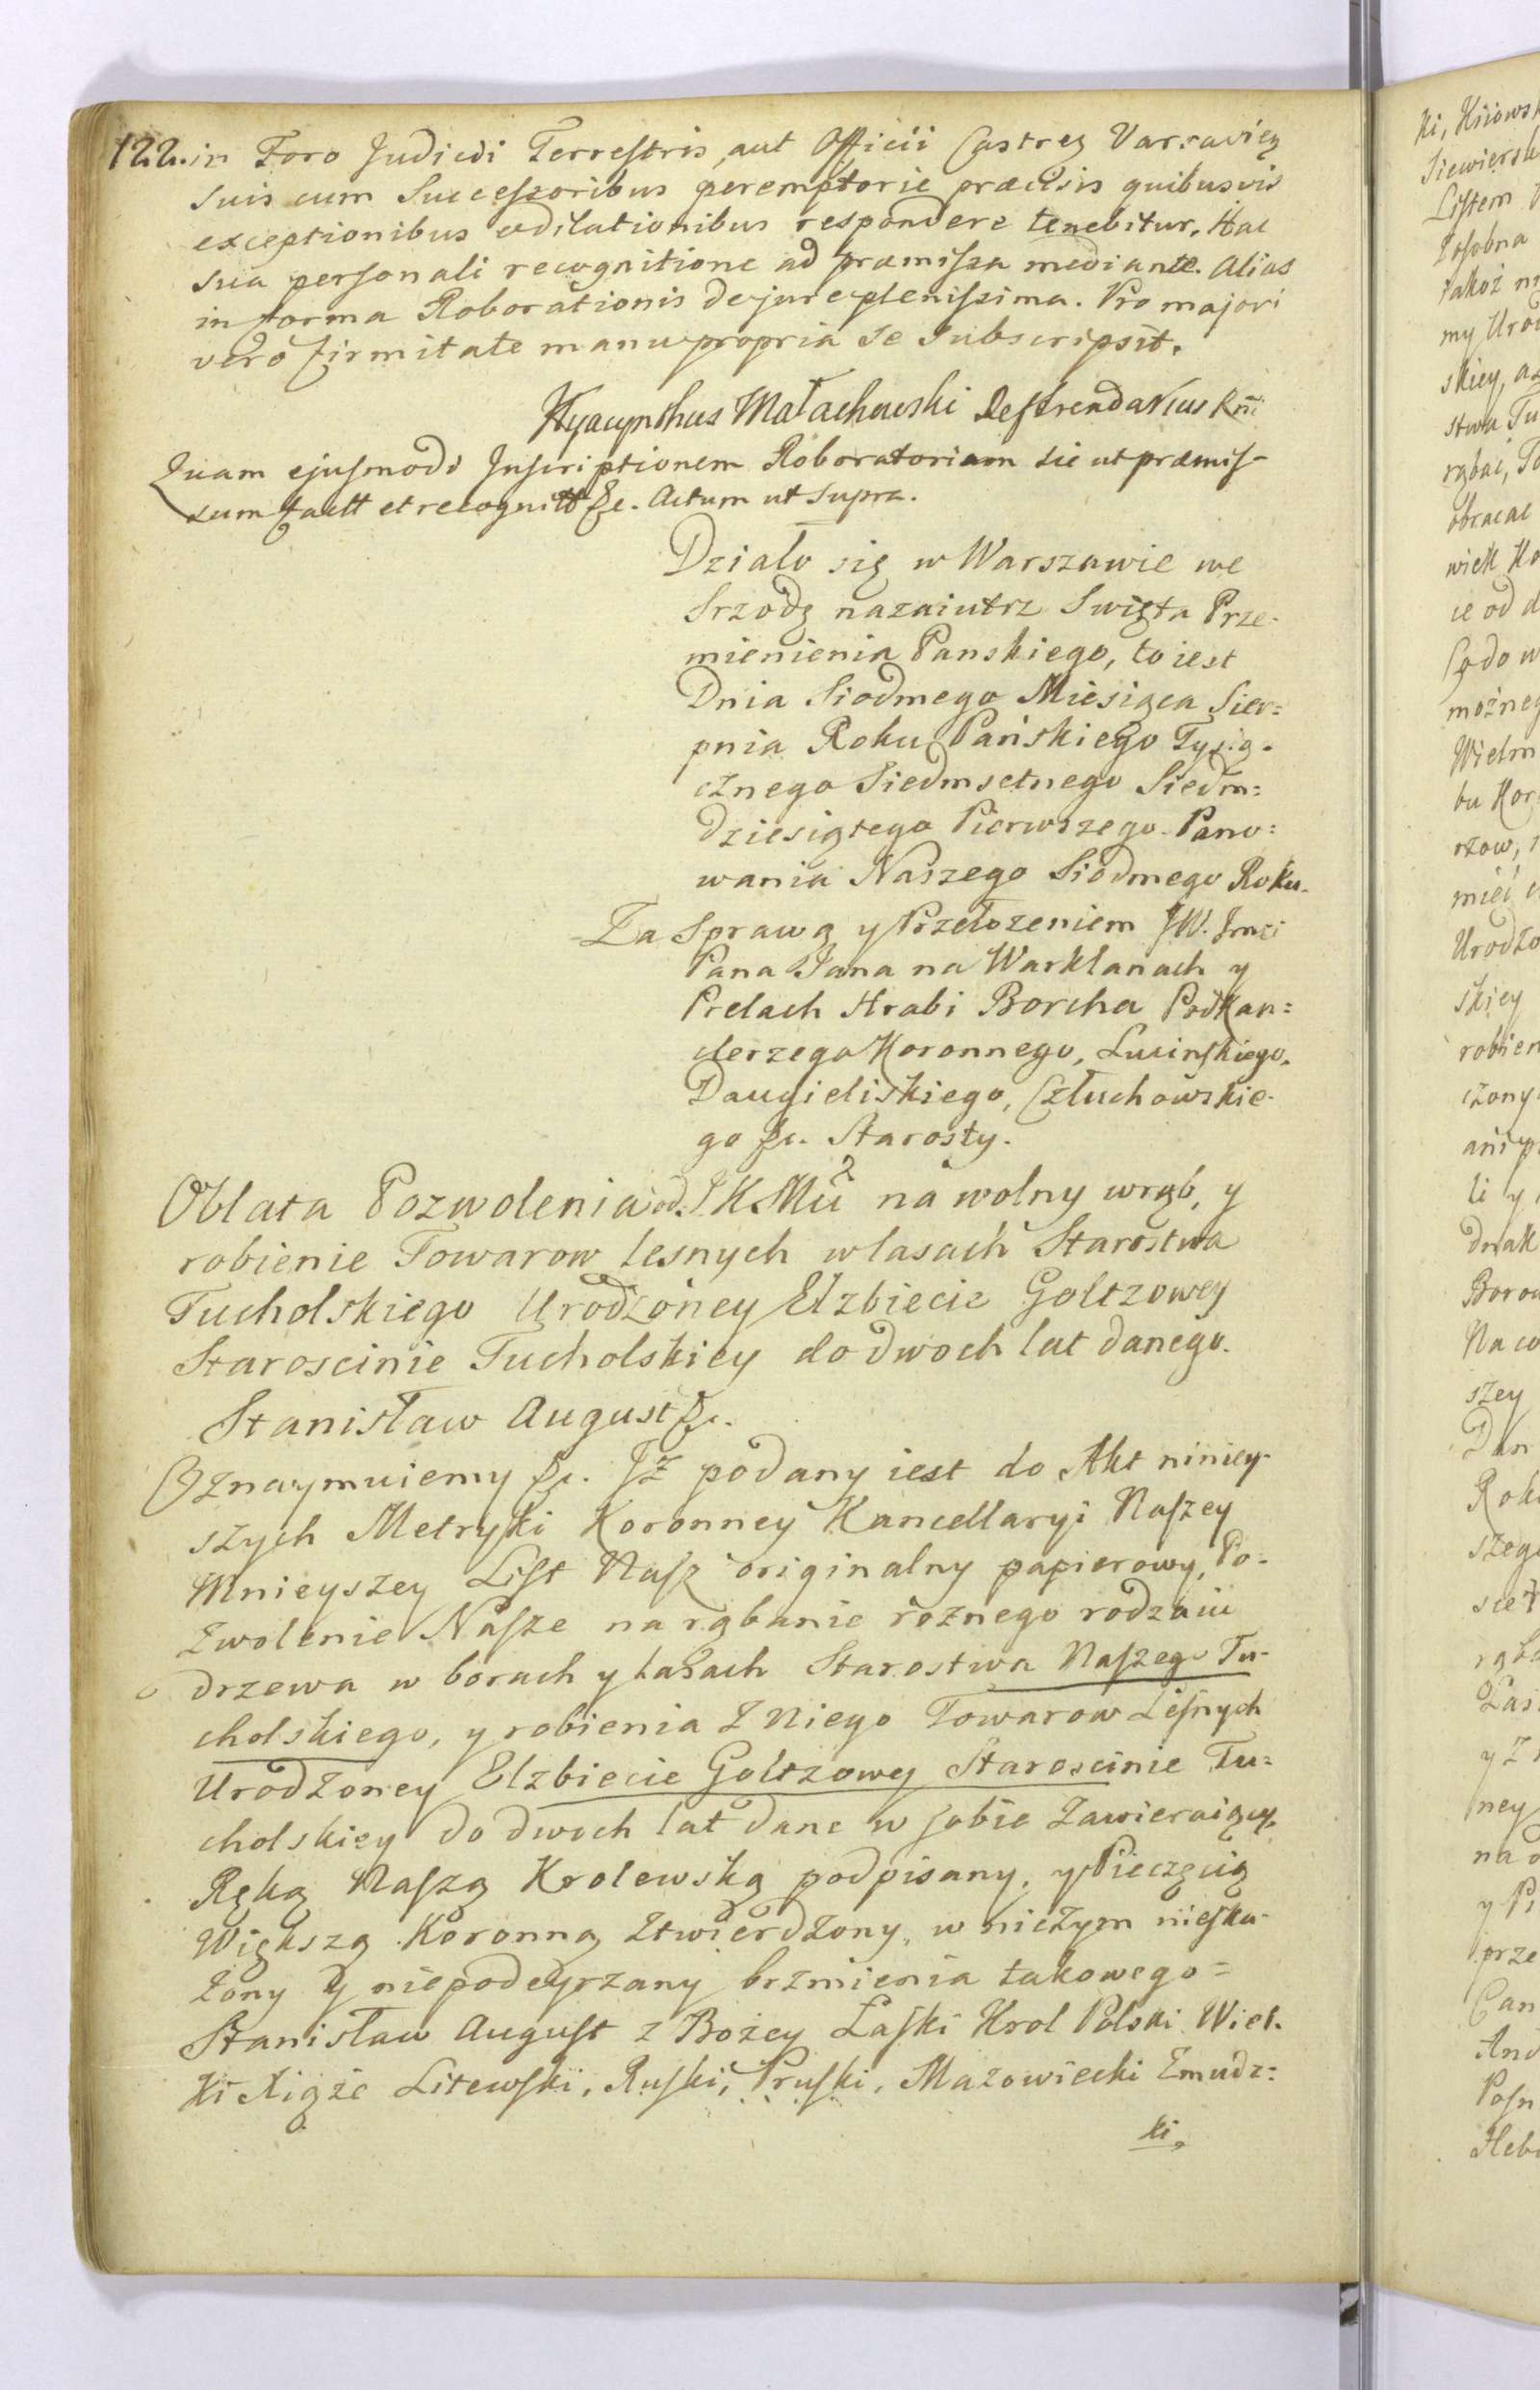 122. in Foro Judicii Terrestris, aut Officii Castren Varsavien
suis cum Successoribus peremptorie præcisis quibusvis
exceptionibus et dilationibus respondere tenebitur. Hac
sua personali recognitione ad præmissa mediante. Alias
in forma Roborationis de jure plenissima. Pro majori
vero firmitate manu propria se subscripsit.
Hyacynthus Małachowski Refferendarius Rni
Quam ejusmodi Inscriptionem Roboratoriam sic ut præmis-
sum factt et recognitt &c. Actum ut Supra.
Działo się w Warszawie we
Srzodę nazaiutrz Swięta Prze-
mienienia Panskiego, to iest
Dnia Siodmego Miesiąca Sier=
pnia Roku Pańskiego Tysią-
cznego Siedmsetnego Siedm=
dziesiątego Pierwszego. Pano=
wania Naszego Siodmego Roku.
Za Sprawą y Przełozeniem JW. Jmci
Pana Jana na Warklanach y
Prelach Hrabi Borcha Podkan=
clerzego Koronnego, Lucinskiego,
Daugieliskiego, Człuchowskie-
go &c. Starosty.
Oblata Pozwolenia od JKMci na wolny wrąb, y
robienie Towarow lesnych w lasach Starostwa
Tucholskiego Urodzoney Elzbiecie Goltzowey
Staroscinie Tucholskiey do dwoch lat danego.
Stanisław August &c.
Oznaymuiemy &c. Jż podany iest do Akt niniey-
szych Metryki Koronney Kancellaryi Naszey
Mnieyszey List Nasz originalny papierowy, Po-
zwolenie Nasze na rąbanie rożnego rodzaiu
drzewa w borach y lasach Starostwa Naszego Tu-
cholskiego, y robienia z niego Towarow Lesnych
Urodzoney Elzbiecie Goltzowey Staroscinie Tu=
cholskiey do dwoch lat dane w sobie zawieraiący,
Ręką Naszą Krolewską podpisany, y Pieczęcią
Większą Koronną ztwierdzony, w niczym nieska-
żony y niepodeyrzany brzmienia takowego=
Stanisław August z Bożey Łaski Krol Polski Wiel-
ki Xiąże Litewski, Ruski, Pruski, Mazowiecki Zmudz=
ki,